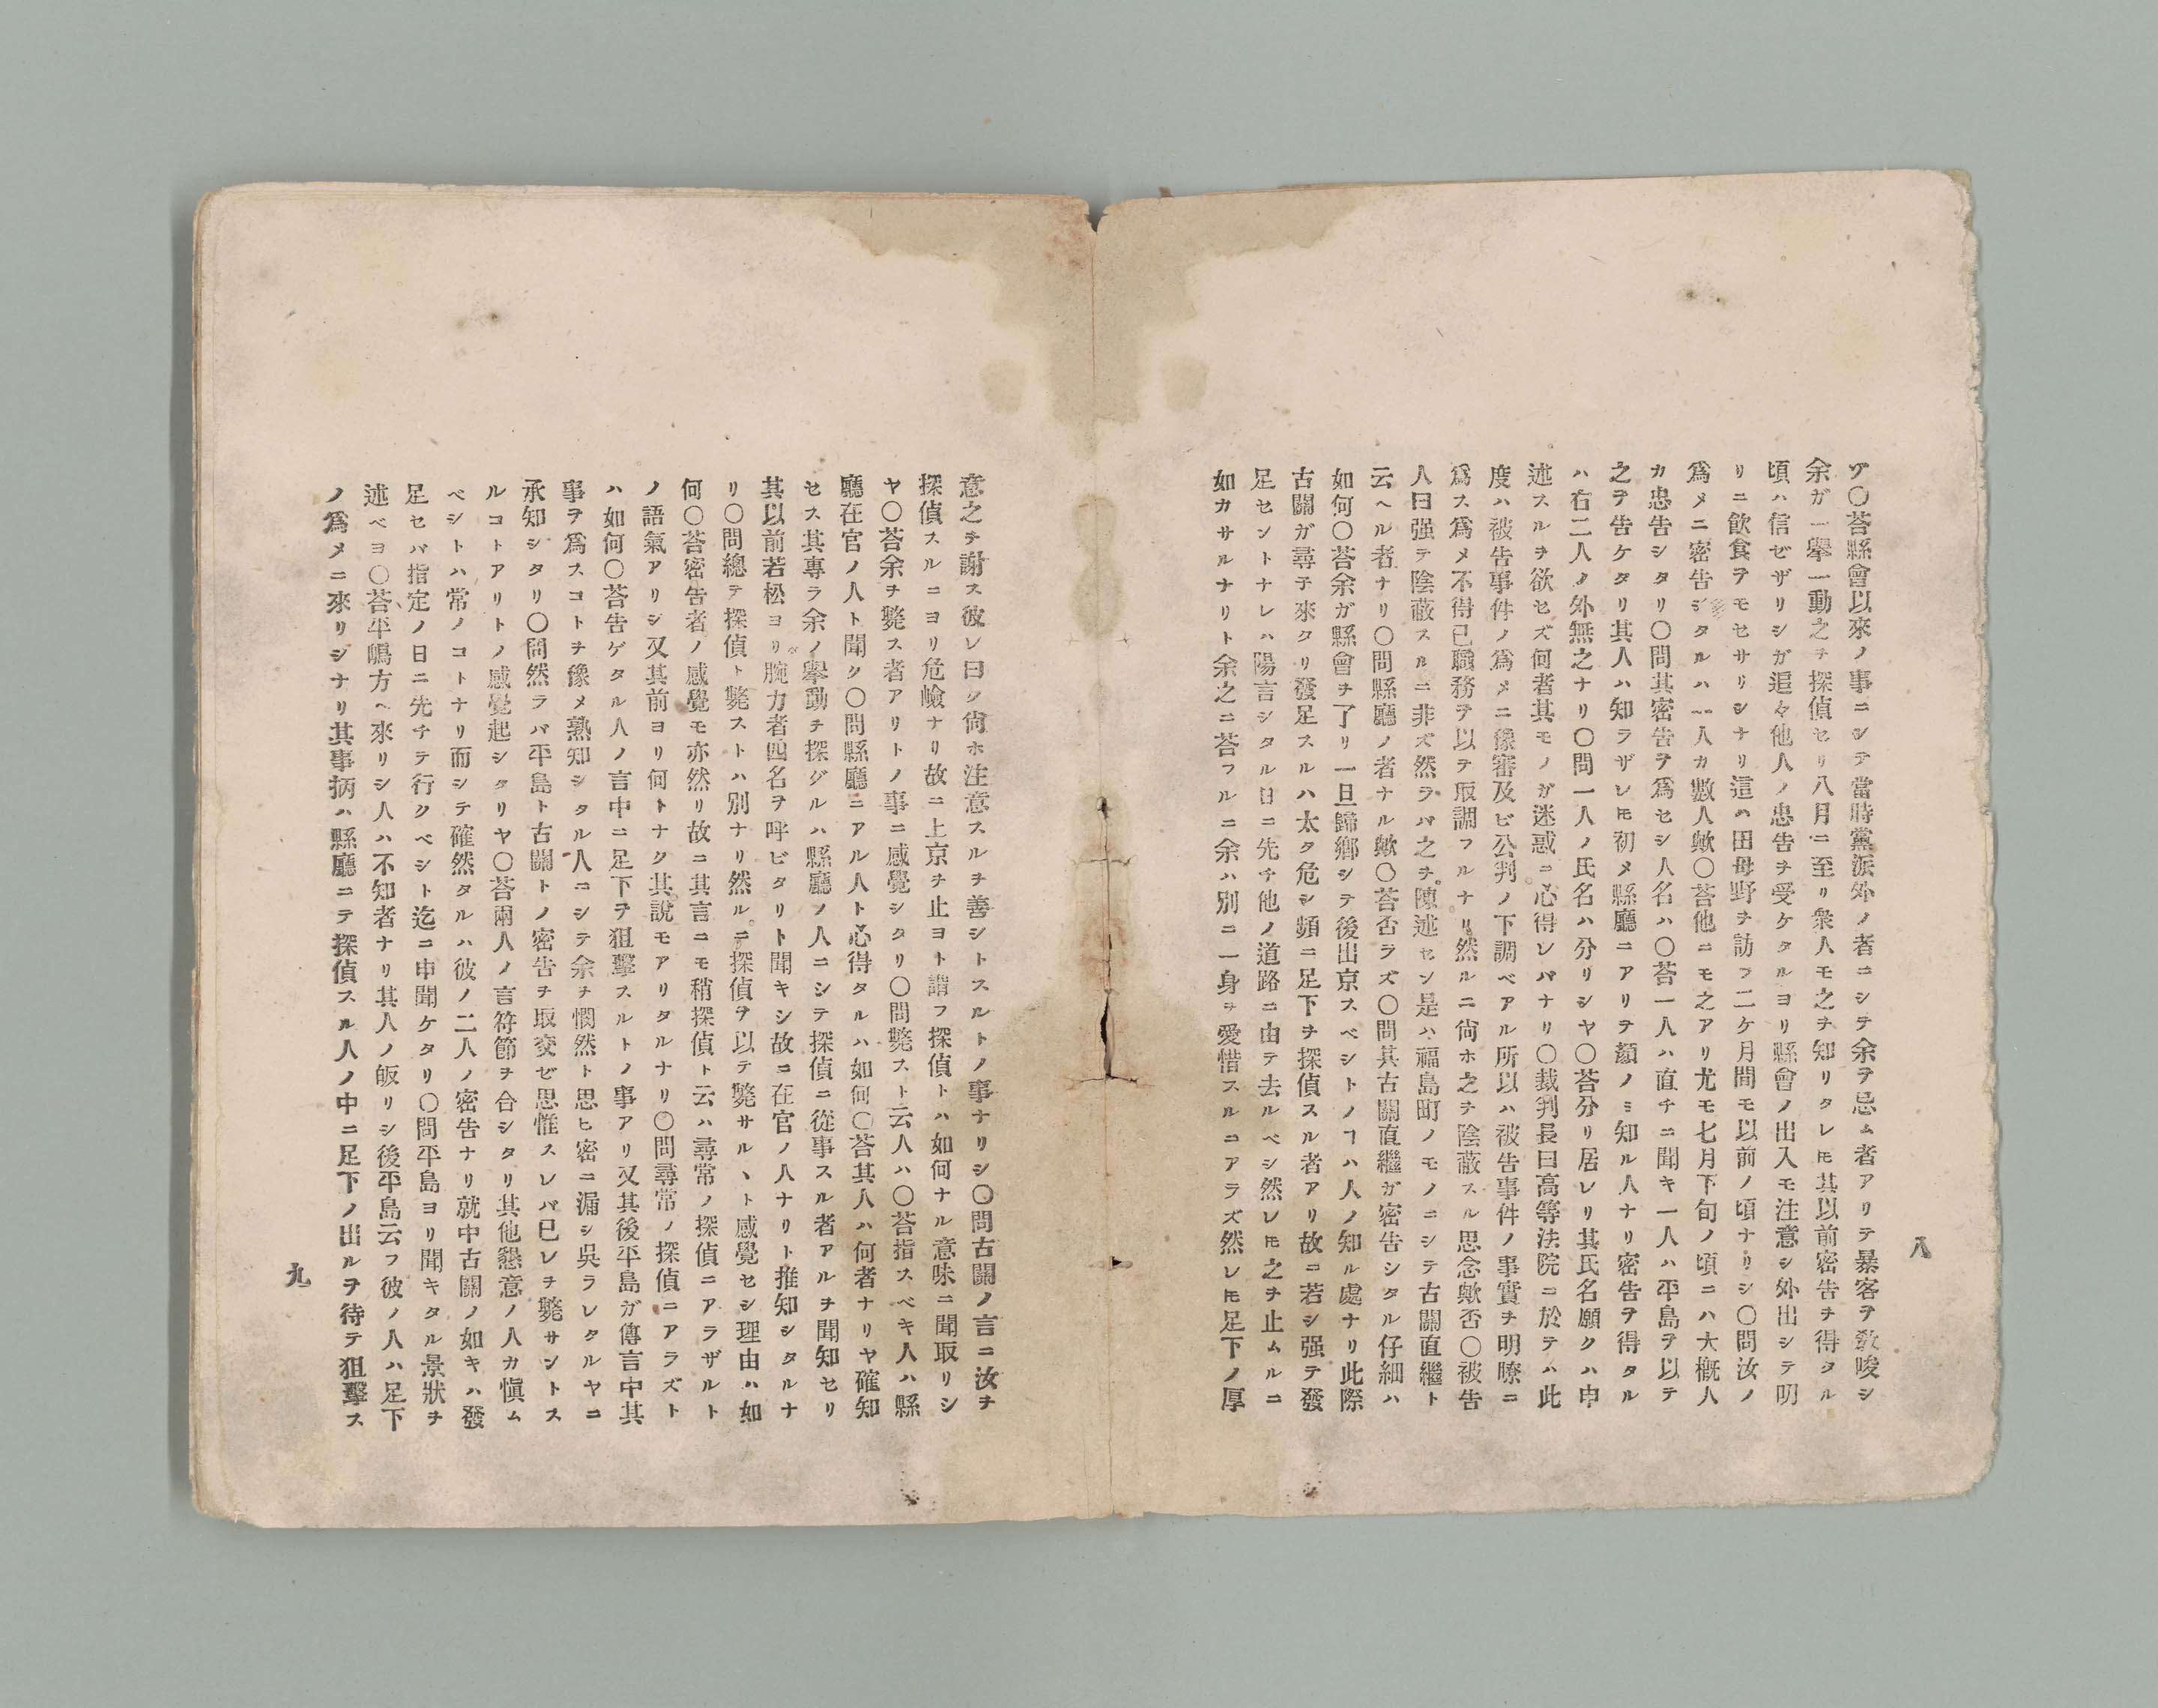 ヤ〇荅縣會以來ノ事ニシテ當時黨派外ノ者ニシテ余ヲ忌ム者アリテ暴客ヲ敎唆シ
余ガ一擧一動之ヲ探偵セリ八月ニ至リ衆人モ之ヲ知リタレ𪜈其以前密告ヲ得タル
頃ハ信ゼザリシガ追々他人ノ忠告ヲ受ケタルヨリ縣會ノ出入モ注意シ外出シテ明
リニ飮食ヲモセサリシナリ這ハ田母野ヲ訪フ二ケ月間モ以前ノ頃ナリシ〇問汝ノ
爲メニ密告シタルハ一人カ數人歟〇荅他ニモ之アリ尤モ七月下旬ノ頃ニハ大槪人
カ忠告シタリ〇問其密告ヲ爲セシ人名ハ〇荅一人ハ直チニ聞キ一人ハ平島ヲ以テ
之ヲ告ケタリ其人ハ知ラザレ𪜈初メ縣廳ニアリテ顏ノミ知ル人ナリ密告ヲ得タル
ハ右二人ノ外無之ナリ〇問一人ノ氏名ハ分リシヤ〇荅分リ居レリ其氏名願クハ申
述スルヲ欲セズ何者其モノガ迷惑ニ心得レバナリ〇裁判長曰高等法院ニ於テハ此
度ハ被告事件ノ爲メニ豫審及ビ公判ノ下調ベアル所以ハ被告事件ノ事實ヲ明瞭ニ
爲ス爲メ不得已職務ヲ以テ取調フルナリ然ルニ尙ホ之ヲ陰蔽スル思念歟否〇被告
人曰强テ陰蔽スルニ非ズ然ラバ之ヲ陳述セン是ハ福島町ノモノニシテ古關直繼ト
云ヘル者ナリ〇問縣廳ノ者ナル歟〇荅否ラズ〇問其古關直繼ガ密告シタル仔細ハ
如何〇荅余ガ縣會ヲ了リ一旦歸鄕シテ後出京スベシトノヿハ人ノ知ル處ナリ此際
古關ガ尋子來タリ發足スルハ太タ危シ頻ニ足下ヲ探偵スル者アリ故ニ若シ强テ發
足セントナレハ陽言シタル日ニ先チ他ノ道路ニ由テ去ルベシ然レ𪜈之ヲ止ムルニ
如カサルナリト余之ニ荅フルニ余ハ別ニ一身ヲ愛惜スルニアラズ然レ𪜈足下ノ厚
八
意之ヲ謝ス彼レ曰ク尙ホ注意スルヲ善シトスルトノ事ナリシ〇問古關ノ言ニ汝ヲ
探偵スルニヨリ危嶮ナリ故ニ上京ヲ止ヨト謂フ探偵トハ如何ナル意味ニ聞取リシ
ヤ〇荅余ヲ斃ス者アリトノ事ニ感覺シタリ〇問斃スト云人ハ〇荅指スベキ人ハ縣
廳在官ノ人ト聞ク〇問縣廳ニアル人ト心得タルハ如何〇荅其人ハ何者ナリヤ確知
セス其專ラ余ノ擧動ヲ探グルハ縣廳ノ人ニシテ探偵ニ從事スル者アルヲ聞知セリ
其以前若松ヨリ腕力者四名ヲ呼ビタリト聞キシ故ニ在官ノ人ナリト推知シタルナ
リ〇問總テ探偵ト斃ストハ別ナリ然ルニ探偵ヲ以テ斃サルヽト感覺セシ理由ハ如
何〇荅密告者ノ感覺モ亦然リ故ニ其言ニモ稍探偵ト云ハ尋常ノ探偵ニアラザルト
ノ語氣アリシ又其前ヨリ何トナク其說モアリタルナリ〇問尋常ノ探偵ニアラズト
ハ如何〇荅告ゲタル人ノ言中ニ足下ヲ狙擊スルトノ事アリ又其後平島ガ傳言中其
事ヲ爲スコトヲ豫メ熟知シタル人ニシテ余ヲ憫然ト思ヒ密ニ漏シ吳ラレタルヤニ
承知シタリ〇問然ラバ平島ト古關トノ密告ヲ取交ゼ思惟スレバ已レヲ斃サントス
ルコトアリトノ感覺起シタリヤ〇荅兩人ノ言符節ヲ合シタリ其他懇意ノ人カ愼ム
ベシトハ常ノコトナリ而シテ確然タルハ彼ノ二人ノ密告ナリ就中古關ノ如キハ發
足セバ指定ノ日ニ先チテ行クベシト迄ニ申聞ケタリ〇問平島ヨリ聞キタル景狀ヲ
述ベヨ〇荅平嶋方ヘ來リシ人ハ不知者ナリ其人ノ皈リシ後平島云フ彼ノ人ハ足下
ノ爲メニ來リシナリ其事柄ハ縣廳ニテ探偵スル人ノ中ニ足下ノ出ルヲ待テ狙擊ス
九